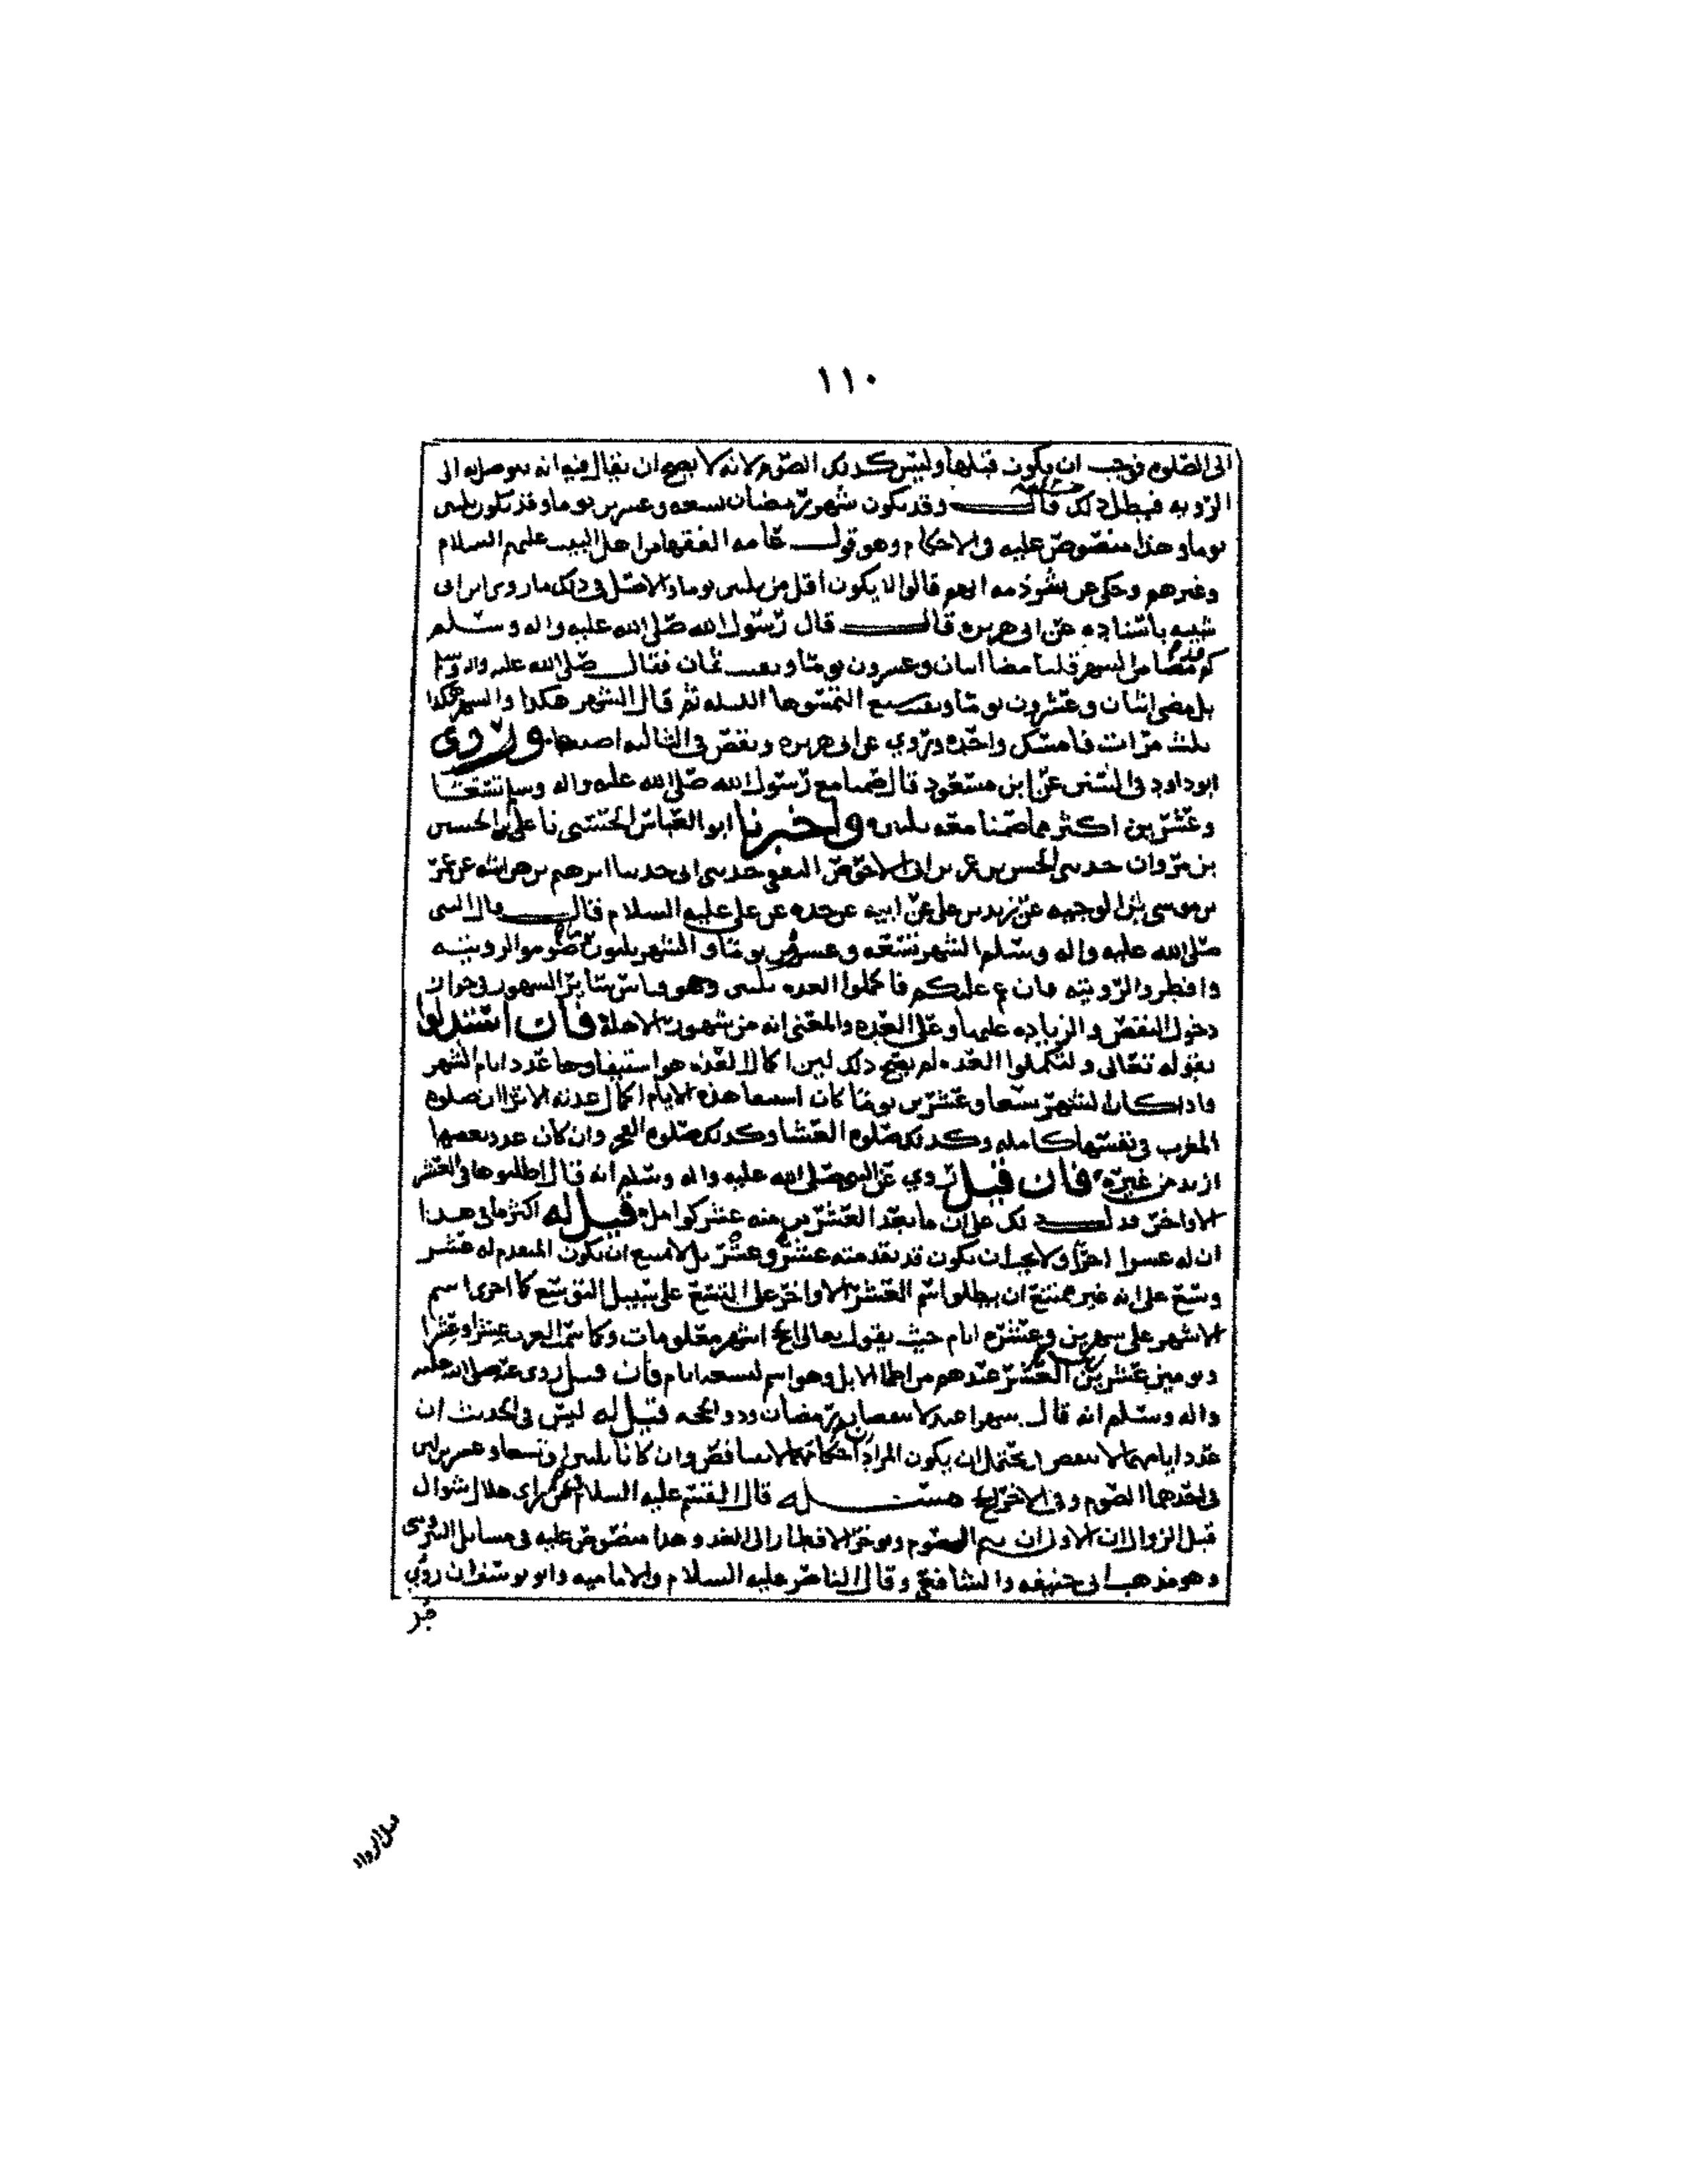 ١١٠
الى الصلوه فوجب ان يكون قبلها وليس كذلك الصوم لانه لا يصح ان يقال فيه انه يتوصل به الى
الرويه فبطل ذلك قال وقد يكون شهر رمضان تسعه وعشرين يوما وقد يكون ثلثين
يوما وهذا منصوص عليه في الاحكام وهو قول عامه الفقها من اهل البيت عليهم السلام
وغيرهم وحكي عن شرذمه انهم قالوا لا يكون اقل من ثلثين يوما والاصل في ذلك ما روى ابن ابي
شيبه باسناده عن ابي هريره قال قال رسول الله صلى الله عليه واله وسلم
كم مضا من الشهر قلنا مضا اثنان وعشرون يوما وبقيت ثمان فقال صلى الله عليه واله وسلم
بل مضى اثنان وعشرون يوما وبقيت سبع التمسوها الليله ثم قال الشهر هكذا والشهر هكذا
ثلث مرات فامسك واحده وروي عن ابي هريره ونقص في الثالثه اصبعا وروى
ابو داود في السنن عن ابن مسعود قال صمنا مع رسول الله صلى الله عليه واله وسلم تسعا
وعشرين اكثر مما صمنا معه ثلثين واخبرنا ابو العباس الحسني نا علي بن الحسين
بن مروان حدثني الحسن بن بن ابي الاحوص الثقفي حدثني ابي حدثنا ابرهيم بن هراسه عن عمر
بن موسى بن الوجيه عن زيد بن علي عن ابيه عن جده عن علي عليه السلام قال قال النبي
صلى الله عليه واله وسلم الشهر تسعه وعشرون يوما والشهر ثلثون صوموا لرويته
وافطروا لرويته فان غم عليكم فاكملوا العده ثلثين وهو قياس سائر الشهور في جواز
دخول النقص والزياده عليها وعلى العده والمعنى انه من شهور الاهلة فان استدلوا
بقوله تعالى ولتكملوا العده لم يصح ذلك لان اكمال العده هو استيفاوها عدد ايام الشهر
واذا كان الشهر تسعا وعشرين يوما كان استيفا هذه الايام اكمال عدته الا ترا ان صلوه
المغرب في نفسها كامله وكذلك صلوه العشا وكذلك صلوه الفجر وان كان عدد بعضها
ازيد من غيره فان قيل روي عن النبي صلى الله عليه واله وسلم انه قال اطلبوها في العشر
الاواخر فدل ذلك على ان ما بعد العشرين منه عشر كوامل قيل له اكثر ما في هذا
ان له عشرا اخرا ولا يجب ان يكون قد تقدمته عشر وعشر بل لا يمتنع ان يكون المتقدم له عشر
وتسع على انه غير ممتنع ان يطلق اسم العشر الاواخر على التسع على سبيل التوسع كما اجرى اسم
الاشهر على شهرين وعشره ايام حيث يقول تعالى الحج اشهر معلومات وكما سمت العرب عشرا وعشرا
ويومين عشرين العشر عندهم من اظما الابل وهو اسم لتسعه ايام فان قيل روي عنه صلى الله عليه
واله وسلم انه قال شهرا عيد لا ينقصان رمضان وذو الحجه قيل له ليس في الحديث ان
عدد ايامهما لا ينقص اذ يحتمل ان يكون المراد احكامهما لا تتناقض وان كانا ثلثين او تسعا وعشرين لان
في احدهما الصوم وفي الاخر الحج مسئله قال القسم عليه السلام فمن راى هلال شوال
قبل الزوال ان الاولى ان يتم الصوم ويوخر الافطار الى الغد وهذا منصوص عليه في مسائل النيروسي
وهو مذهب ابي حنيفه والشافعي وقال الناصر عليه السلام والاماميه وابو يوسف ان روي
قبل الزوال